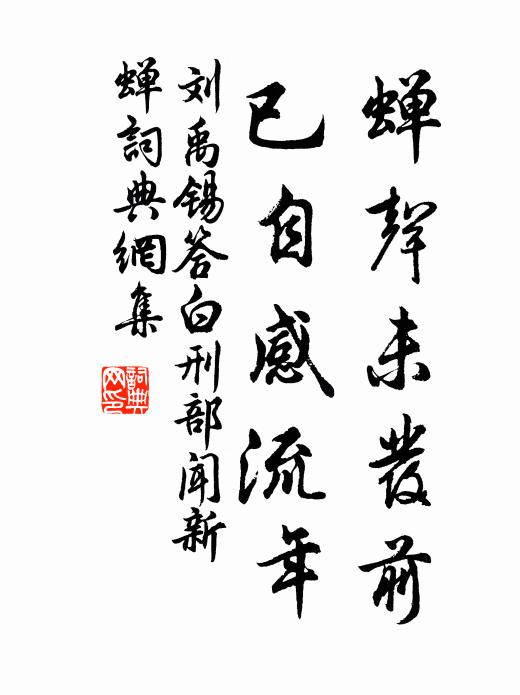 蝉聲未發前
已自感流年
刘禹锡答白刑部闻新
蝉詞典網集
詞典网印